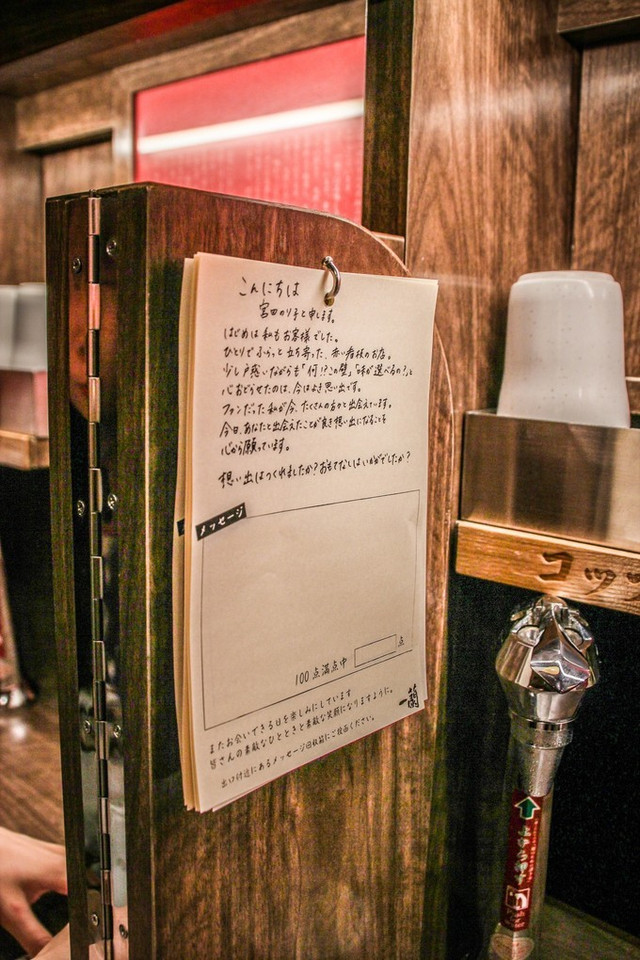 こんにちは
宮田のり子と申します。
はじめは私もお客様でした。
ひとりでふらっと立ち寄った、赤い看板のお店。
少し戸惑いながらも「何!?この壁」「味が選べるの?」と
心おどらせたのは、今はよき思い出です。
ファンだった私が今、たくさんの方々と出会えています。
今日、あなたと出会えたことが良き想い出になることを
心から願っています。
想い出はつくれましたか?おもてなしはいかがでしたか?
メッセージ
100点満点中
点
またお会いできる日を楽しみにしています
皆さんの素敵なひとときと素敵な笑顔になりますように。
出口付近にあるメッセージ回収箱にご投函ください。
一蘭
コップ
上から押す